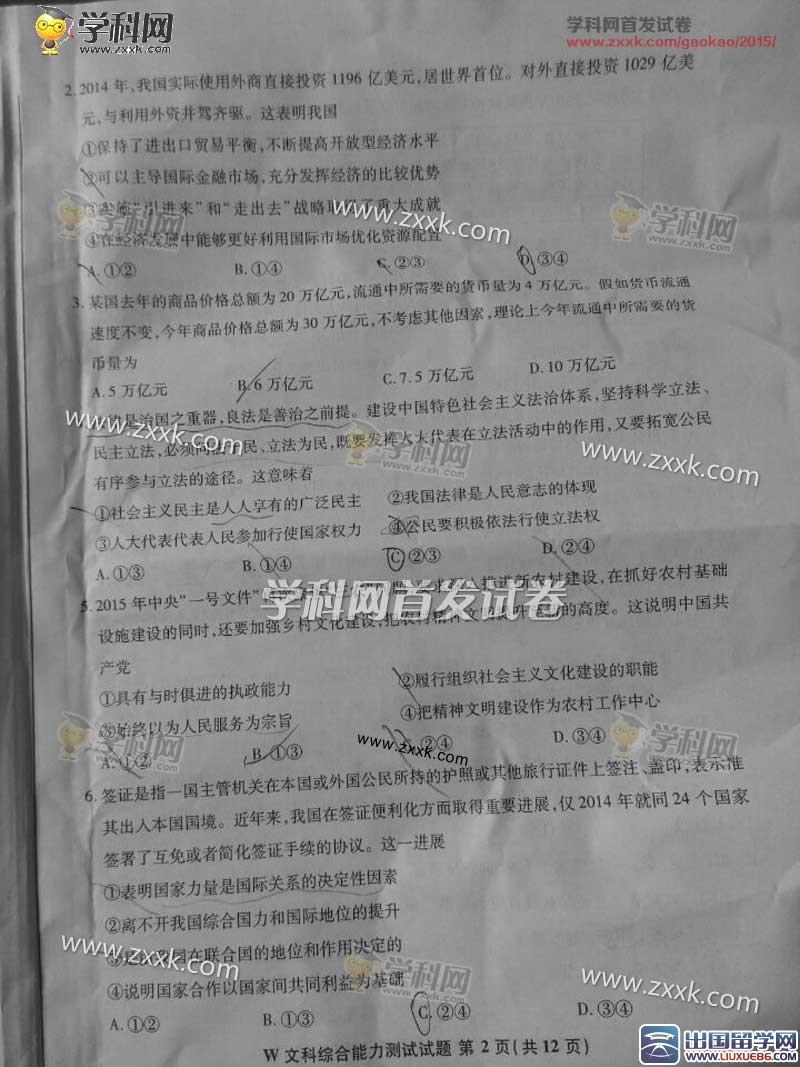 学科网
www.zxxk.com
学科网首发试卷
www.zxxk.com/gaokao/2015/
2. 2014 年,我国实际使用外商直接投资 1196 亿美元,居世界首位。对外直接投资 1029 亿美
元,与利用外资并驾齐驱。这表明我国
①保持了进出口贸易平衡,不断提高开放型经济水平
②可以主导国际金融市场,充分发挥经济的比较优势
③实施“引进来”和“走出去”战略取得了重大成就
④在经济发展中能够更好利用国际市场优化资源配置
A. ①② B. ①④ C. ②③ D. ③④
3. 某国去年的商品价格总额为 20 万亿元,流通中所需要的货币量为 4 万亿元。假如货币流通
速度不变,今年商品价格总额为 30 万亿元,不考虑其他因素,理论上今年流通中所需要的货
币量为
A. 5 万亿元 B. 6 万亿元 C. 7.5 万亿元 D. 10 万亿元
是治国之重器,良法是善治之前提。建设中国特色社会主义法治体系,坚持科学立法、
民主立法,必须 民、立法为民,既要发挥人大代表在立法活动中的作用,又要拓宽公民
有序参与立法的途径。这意味着
①社会主义民主是人人享有的广泛民主 ②我国法律是人民意志的体现
③人大代表代表人民参加行使国家权力 ④公民要积极依法行使立法权
A. ①③ B. ①④ C. ②③ D. ②④
5. 2015 年中央“一号文件” 推进新农村建设,在抓好农村基础
设施建设的同时,还要加强乡村文化建设,把农村精神文明 的高度。这说明中国共
产党
①具有与时俱进的执政能力 ②履行组织社会主义文化建设的职能
③始终以为人民服务为宗旨 ④把精神文明建设作为农村工作中心
A. ①② B. ①③ C. ②④ D. ③④
6. 签证是指一国主管机关在本国或外国公民所持的护照或其他旅行证件上签注、盖印,表示准
其出入本国国境。近年来,我国在签证便利化方面取得重要进展,仅 2014 年就同 24 个国家
签署了互免或者简化签证手续的协议。这一进展
①表明国家力量是国际关系的决定性因素
②离不开我国综合国力和国际地位的提升
③是 我国在联合国的地位和作用决定的
④说明国家合作以国家间共同利益为基础
A. ①② B. ①③ C. ②④ D. ③④
W 文科综合能力测试试题 第 2 页(共 12 页)
出国留学网
www.liuxue86.com